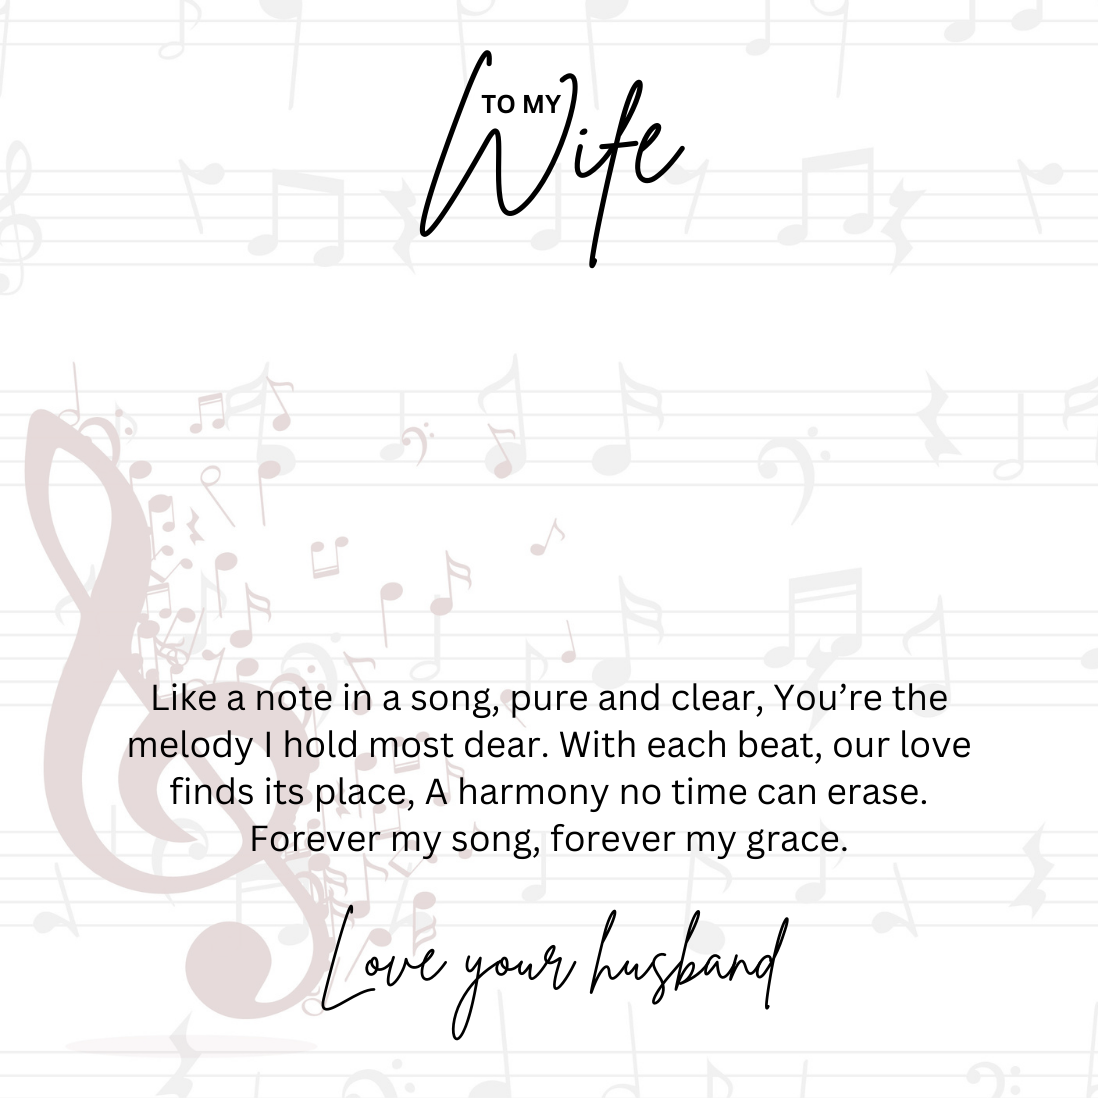 TO MY
Wife
Like a note in a song, pure and clear, You’re the
melody I hold most dear. With each beat, our love
finds its place, A harmony no time can erase.
Forever my song, forever my grace.
Love your husband